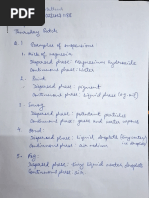 Thursday Batch
Q.1 Examples of suspensions
1. Milk of magnesia
Dispersed phase: Magnesium hydroxide
Continuous phase: Water
2. Paint
Dispersed phase: pigment
Continuous phase: liquid phase
3. Smog
Dispersed phase: pollutant particles
Continuous phase: gases and water vapour
4.
Dispersed phase: Liquid droplets
Continuous phase: air
5. Fog:
Dispersed phase: tiny liquid water droplets
Continuous phase: Air